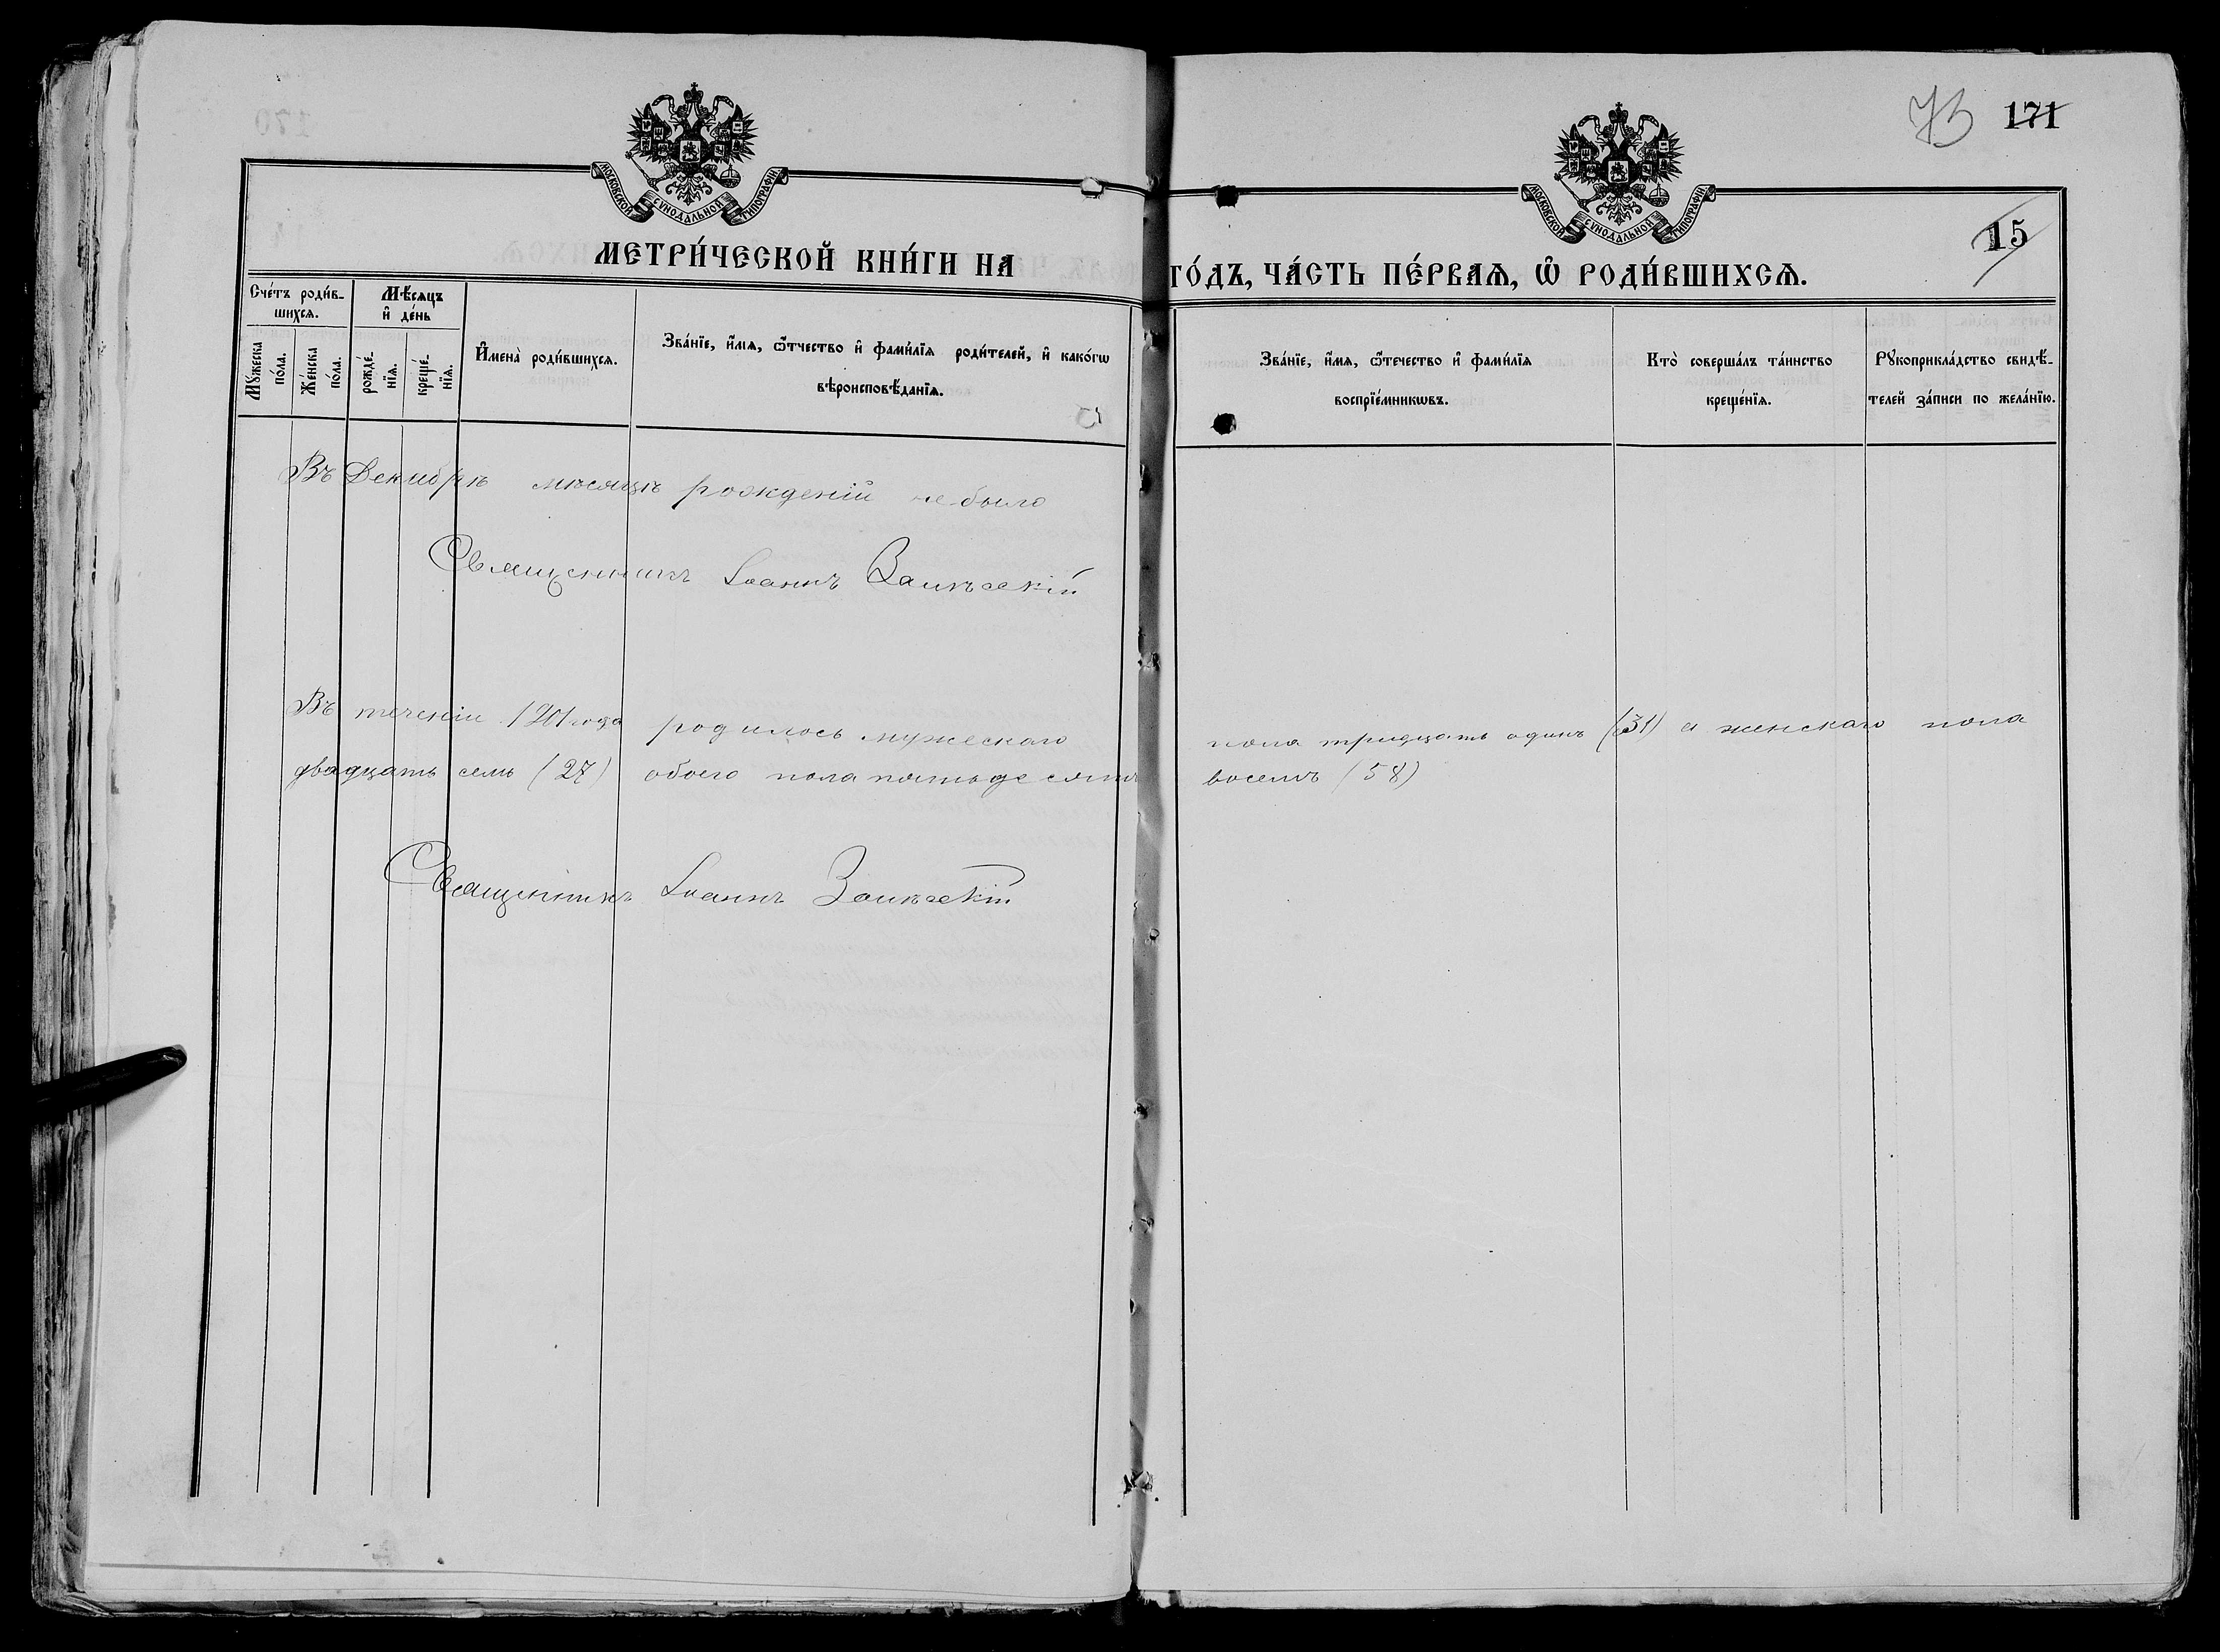 73 171
МОСКОВСКОЙ СѴНОДАЛЬНОЙ ТИПОГРАФІИ
МОСКОВСКОЙ СѴНОДАЛЬНОЙ ТИПОГРАФІИ
15
МЕТРИ́ЧЕСКОЙ КНИ́ГИ НА ГО́ДЪ, ЧА́СТЬ ПЕ́РВАѦ, Ѽ РОДИ́ВШИХСѦ.
Сче́тъ роди́в-
шихсѧ.
Мꙋ́жеска
по́ла.
Же́нска
по́ла.
Мѣ́сѧцъ
и҆ де́нь
рожде́-
нїѧ.
креще́-
нїѧ.
И҆мена̀ роди́вшихсѧ.
Зва́нїе, и҆́мѧ, ѻ҆́тчество и҆ фами́лїѧ роди́телей, и҆ како́гѡ
вѣроисповѣ́данїѧ.
Зва́нїе, и҆́мѧ, ѻ҆те́чество и҆ фами́лїѧ
воспрїе́мникѡвъ.
Кто̀ соверша́лъ та́инство
креще́нїѧ.
Рꙋкоприкла́дство свидѣ́-
телей за́писи по жела́нїю.
Въ Декабрѣ мѣсяцѣ рожденій не было
Священникъ Іоаннъ
Въ теченіи 1901 года родилось мужескаго пола тридцать одинъ (31) а женскаго пола
двадцать семь (27) обоего пола пятьдесятъ восемь (58)
Священникъ Іоаннъ